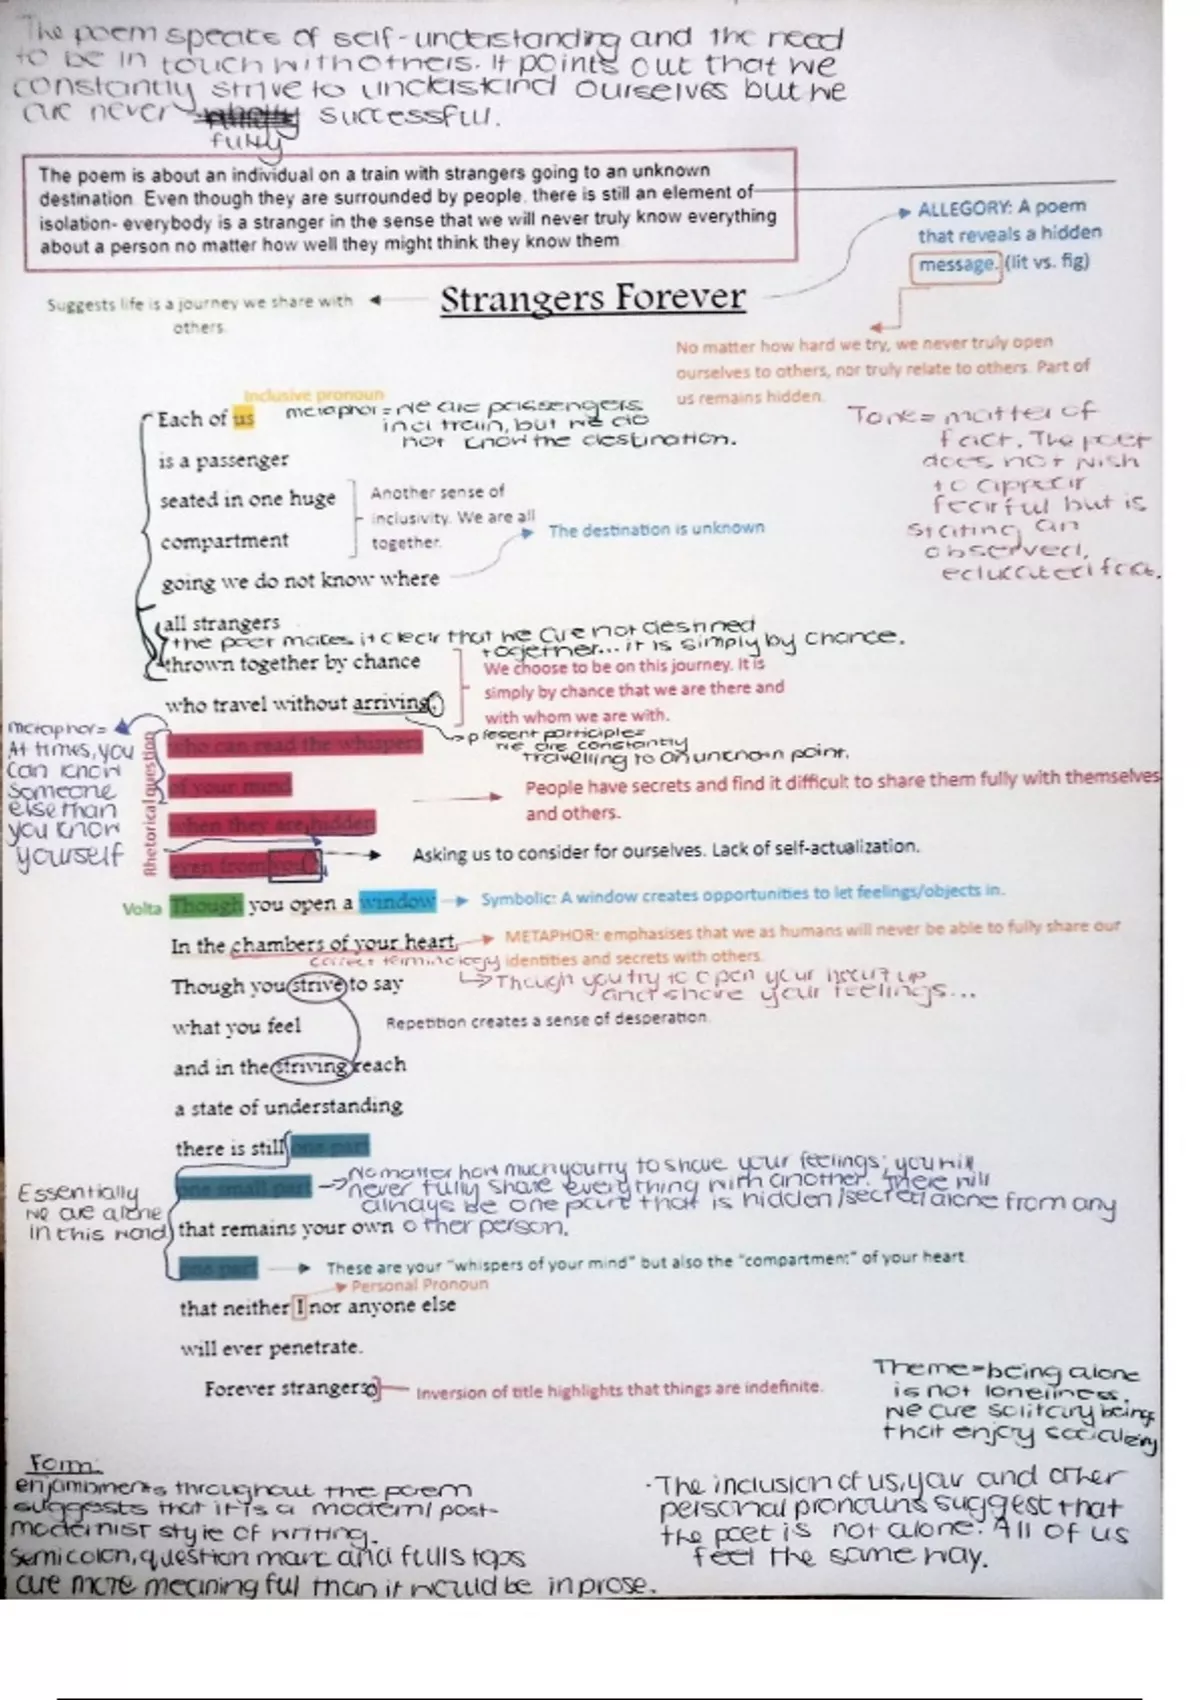 The poem speaks of self-understanding and the need
to be in touch with others. It points out that we
constantly strive to understand ourselves but we
are never successful.
fully
The poem is about an individual on a train with strangers going to an unknown
destination. Even though they are surrounded by people, there is still an element of
isolation- everybody is a stranger in the sense that we will never truly know everything
about a person no matter how well they might think they know them
ALLEGORY: A poem
that reveals a hidden
message. (lit vs. fig)
Suggests life is a journey we share with
others.
Strangers Forever
No matter how hard we try, we never truly open
ourselves to others, nor truly relate to others. Part of
us remains hidden.
Inclusive pronoun
Each of us
metaphor = we are passengers
in a train, but we do
not know the destination.
Tone = matter of
fact. The poet
does not wish
to appear
fearful but is
stating an
observed,
educated fact.
is a passenger
seated in one huge
compartment
Another sense of
inclusivity. We are all
together.
The destination is unknown
going we do not know where
all strangers
the poet makes it clear that we are not destined
together... it is simply by chance.
thrown together by chance
who travel without arriving;
We choose to be on this journey. It is
simply by chance that we are there and
with whom we are with.
present participle=
we are constantly
travelling to an unknown point.
metaphor=
At times, you
can know
someone
else than
you know
yourself
Rhetorical question
who can read the whispers
of your mind
when they are hidden
even from you?
People have secrets and find it difficult to share them fully with themselves
and others.
Asking us to consider for ourselves. Lack of self-actualization.
Volta
Though you open a window
Symbolic: A window creates opportunities to let feelings/objects in.
In the chambers of your heart,
METAPHOR: emphasises that we as humans will never be able to fully share our
identities and secrets with others.
correct terminology
Though you try to open your heart up
and share your feelings...
Though you strive to say
what you feel
Repetition creates a sense of desperation.
and in the striving reach
a state of understanding
there is still one part
one small part
No matter how much you try to share your feelings; you will
never fully share everything with another. There will
always be one part that is hidden/secret/alone from any
other person.
Essentially
we are alone
in this world
that remains your own
one part
These are your "whispers of your mind" but also the "compartment" of your heart
Personal Pronoun
that neither I nor anyone else
will ever penetrate.
Forever strangers.
Inversion of title highlights that things are indefinite.
Theme=being alone
is not loneliness.
We are solitary beings
that enjoy socializing
Form:
enjambments throughout the poem
suggests that it is a modern/post-
modernist style of writing.
Semicolon, question mark and full stops
are more meaningful than it would be in prose.
·The inclusion of us, your and other
personal pronouns suggest that
the poet is not alone. All of us
feel the same way.